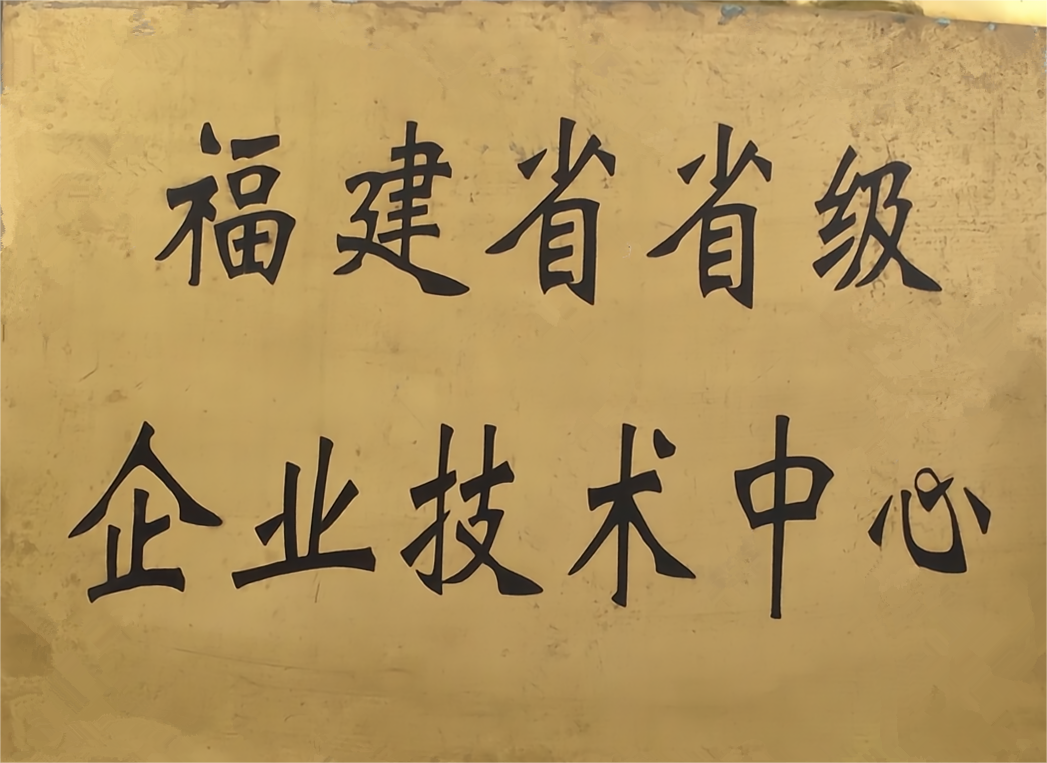 福建省省级
企业技术中心